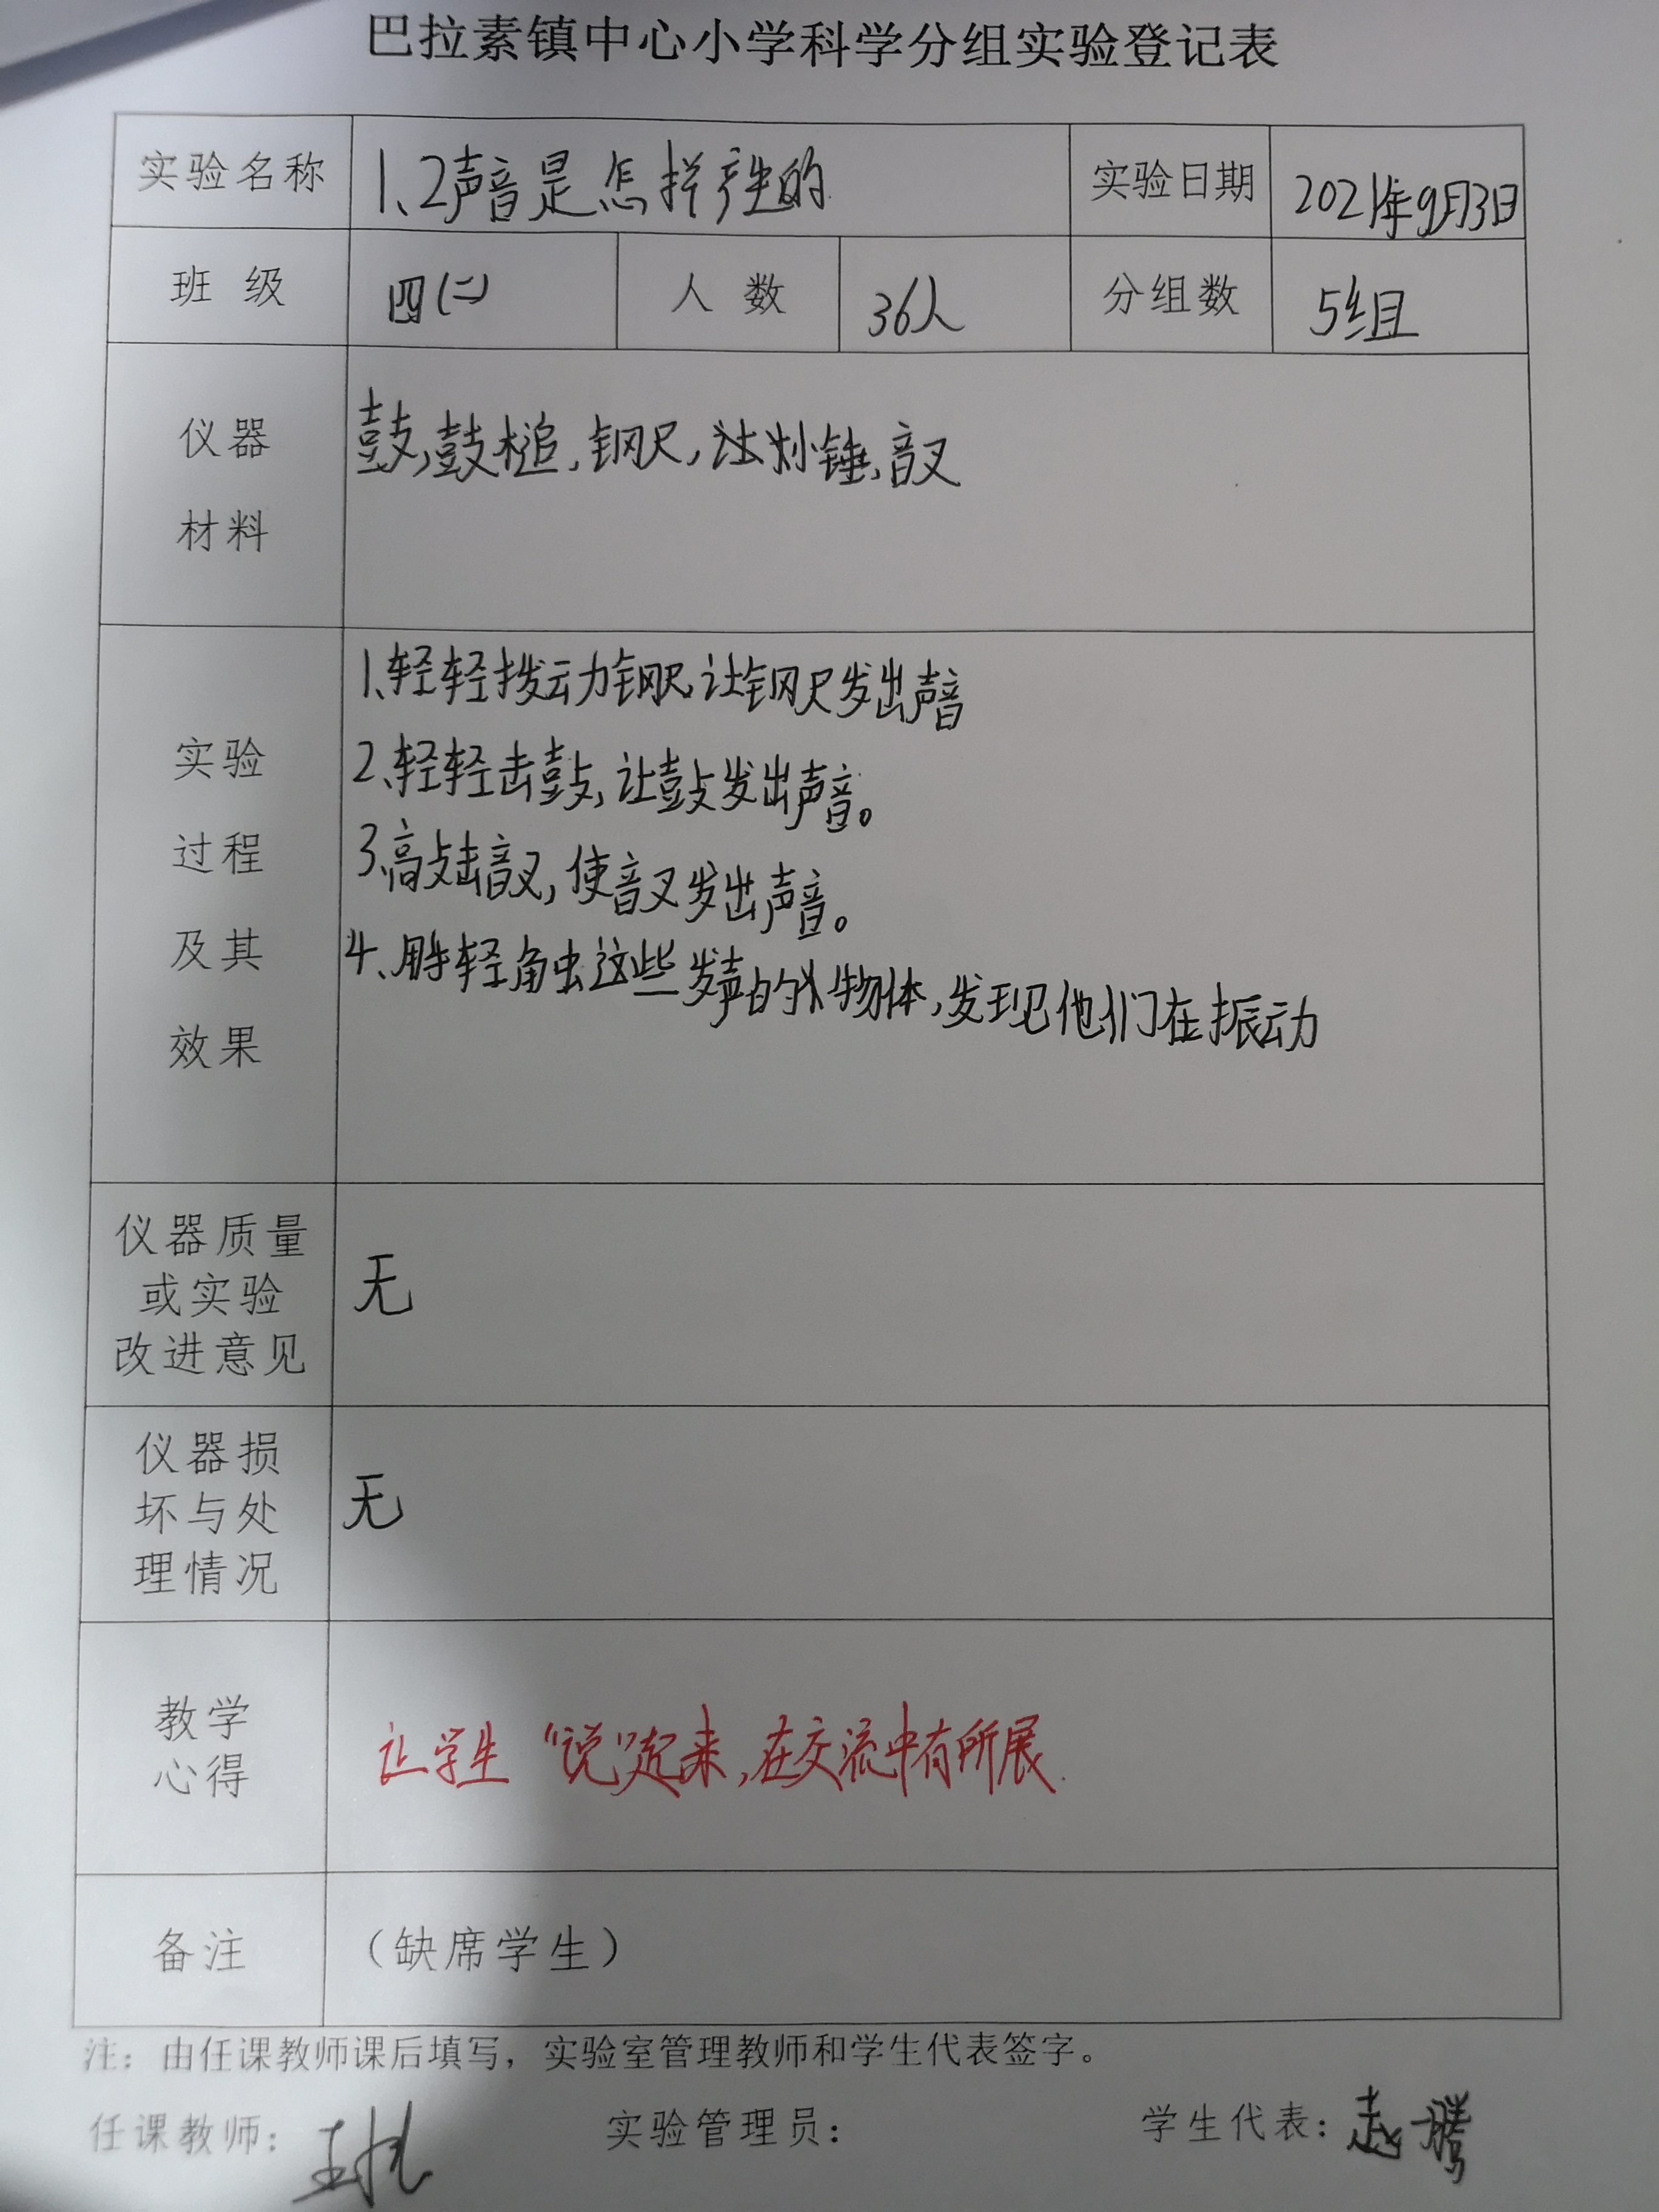 巴拉素镇中心小学科学分组实验登记表
实验名称 1、2声音是怎样产生的 实验日期 2021年9月3日
班 级 四(二) 人 数 36人 分组数 5组
仪器
材料
鼓,鼓槌,钢尺,锤,音叉
实验
过程
及其
效果
1、轻轻拨动钢尺,让钢尺发出声音
2、轻轻击鼓,让鼓发出声音。
3、敲击音叉,使音叉发出声音。
4、用手轻触这些发声的物体,发现他们在振动
仪器质量
或实验
改进意见
无
仪器损
坏与处
理情况
无
教学
心得
让学生“说”起来,在交流中有所展
备注 (缺席学生)
注:由任课教师课后填写,实验室管理教师和学生代表签字。
任课教师: 实验管理员: 学生代表:赵腾